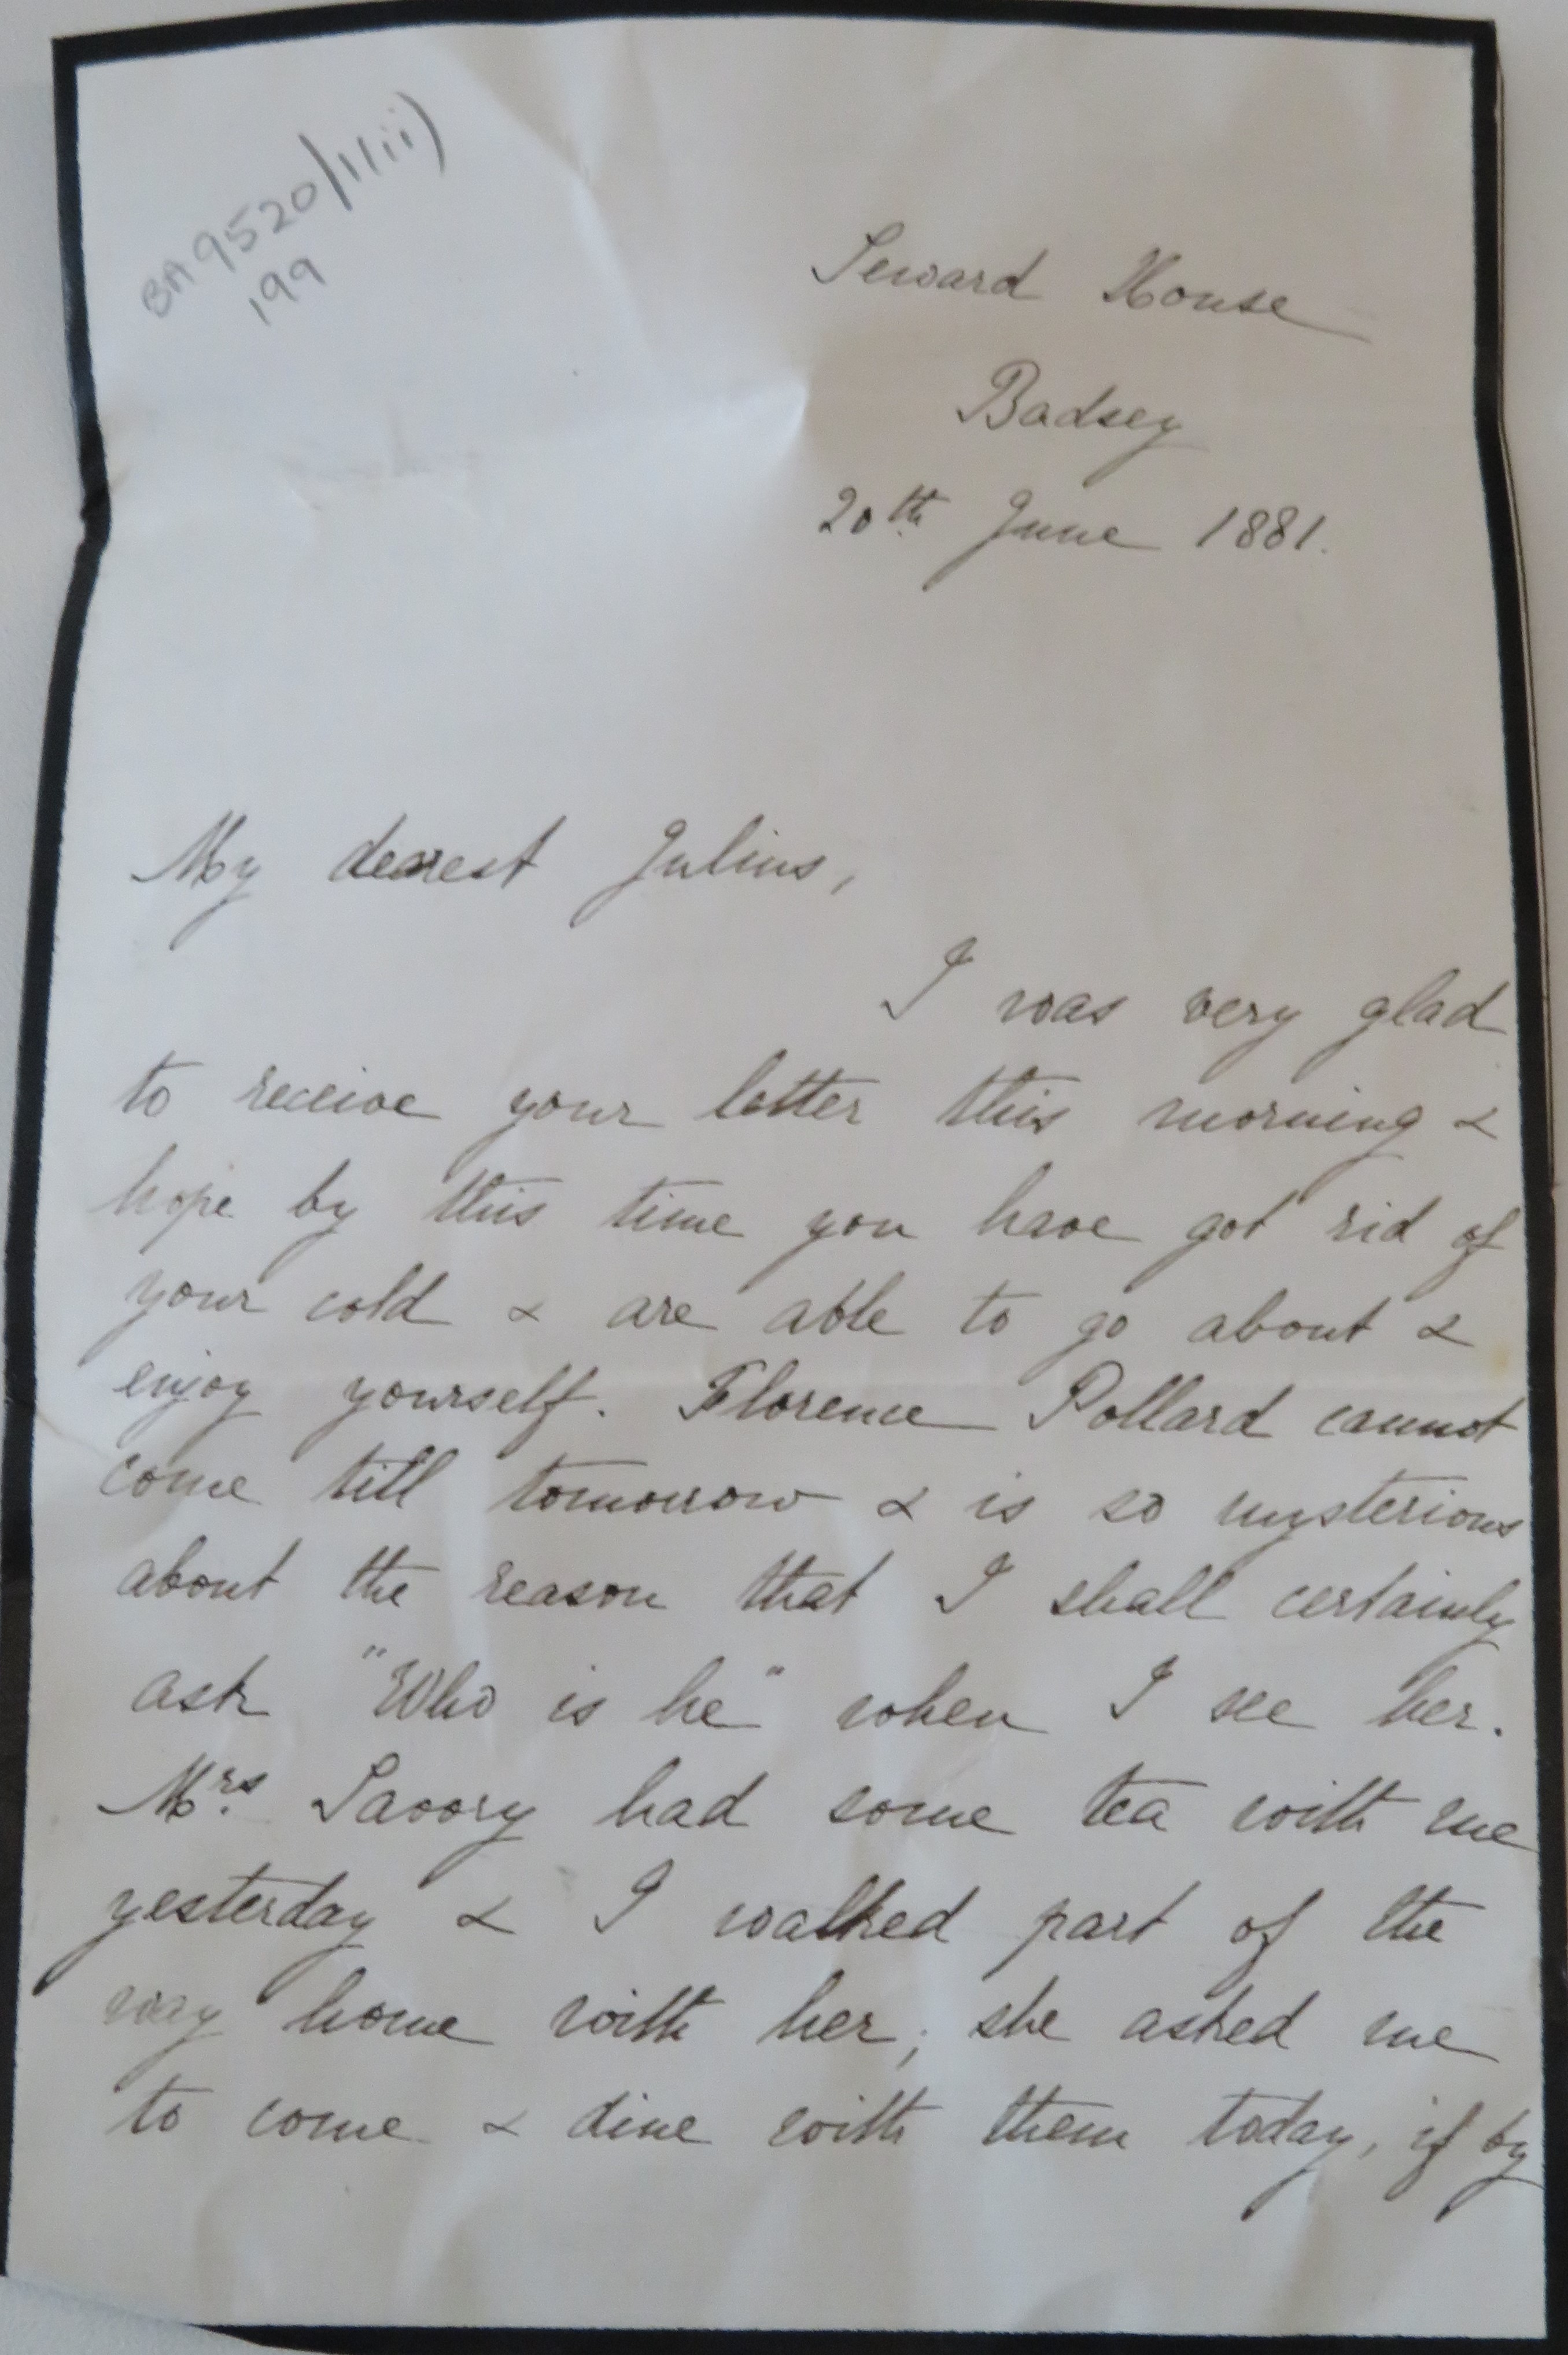 BA9520/1(ii)
199
Seward House
Badsey
20th June 1881.
My dearest Julius,
I was very glad
to receive your letter this morning &
hope by this time you have got rid of
your cold & are able to go about &
enjoy yourself. Florence Pollard cannot
come till tomorrow & is so mysterious
about the reason that I shall certainly
ask "Who is he" when I see her.
Mrs. Savory had some tea with me
yesterday & I walked part of the
way home with her; she asked me
to come & dine with them today, if by